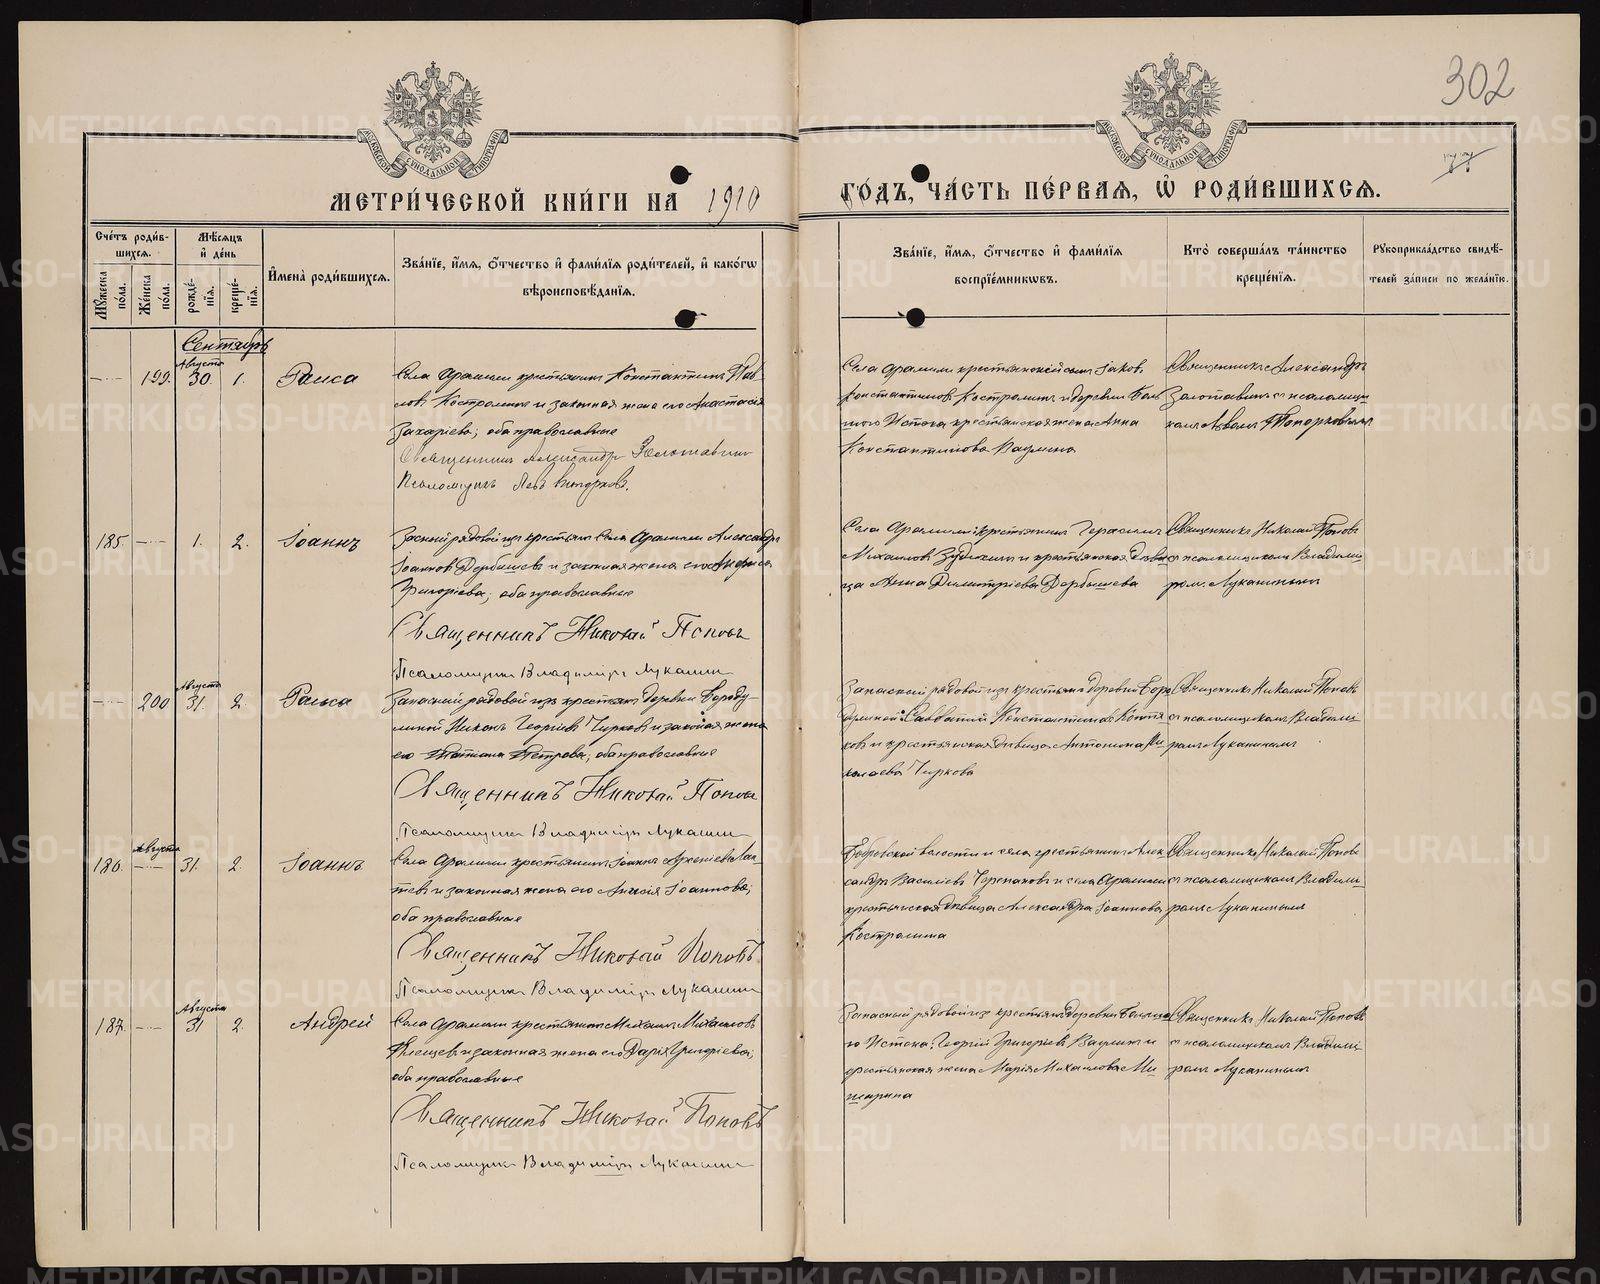 302
77
МЕТРИ́ЧЕСКОЙ КНИ́ГИ НА 1910 ГО́ДЪ, ЧА́СТЬ ПЕ́РВАЯ, Ѽ РОДИ́ВШИХСЯ.
МОСКОВСКОЙ СѴНОДАЛЬНОЙ ТИПОГРАФІИ
МОСКОВСКОЙ СѴНОДАЛЬНОЙ ТИПОГРАФІИ
Сче́тъ роди́в-
шихся.
Мꙋ́жеска по́ла.
Же́нска по́ла.
Мѣ́сяцъ
и҆ де́нь
рожде́-
нїѧ.
креще́-
нїѧ.
И҆мена̀ роди́вшихся.
Зва́нїе, и҆́мѧ, ѻ҆́тчество и҆ фами́лїѧ роди́телей, и҆ како́гѡ
вѣроисповѣ́данїѧ.
Зва́нїе, и҆́мѧ, ѻ҆́тчество и҆ фами́лїѧ
воспрїе́мникѡвъ.
Кто̀ соверша́лъ та́инство
креще́нїѧ.
Рꙋкоприкла́дство свидѣ́-
телей за́писи по жела́нїю.
Сентябрь
199. Августа 30. 1. Раиса
Села Арамили крестьянинъ Константинъ Пав-
ловъ Костроминъ и законная жена его Анастасія
Захаріева; оба православные
Священникъ Александръ Золотавинъ
Псаломщикъ
Села Арамили крестьянскій сынъ Іаковъ
Константиновъ Костроминъ и деревни Боль
шого Истока крестьянская жена Анна
Константинова Ваулина
Священникъ Александръ
Золотавинъ съ псаломщи
комъ
185. 1. 2. Іоаннъ
рядовой изъ крестьянъ Села Арамили Александръ
Іоанновъ Дербышевъ и законная жена его Анфиса
Григоріева; оба православные
Священникъ Николай Поповъ
Псаломщикъ Владиміръ Луканинъ
Села Арамили крестьянинъ Герасимъ
Михаиловъ и крестьянская дѣви
ца Анна Димитріева Дербышева
Священникъ Николай Поповъ
съ псаломщикомъ Владимі
ромъ Луканинымъ
200 Августа 31. 2. Раиса
Запасный рядовой изъ крестьянъ деревни Бороду-
линой Никонъ Георгіевъ Чирковъ и законная жена
его Татіана Петрова; оба православные
Священникъ Николай Поповъ
Псаломщикъ Владиміръ Луканинъ
Запасный рядовой изъ крестьянъ деревни Боро
дулиной Савватій Константиновъ
ковъ и крестьянская дѣвица Антонина Ни
колаева Чиркова
Священникъ Николай Поповъ
съ псаломщикомъ Владимі
ромъ Луканинымъ
186. Августа 31. 2. Іоаннъ
Села Арамили крестьянинъ Іоаннъ Арсеніевъ Лап
тевъ и законная жена его Анисія Іоаннова;
оба православные
Священникъ Николай Поповъ
Псаломщикъ Владиміръ Луканинъ
Бобровской волости и села крестьянинъ Алек
сандръ Василіевъ Черепановъ и села Арамили
крестьянская дѣвица Александра Іоаннова
Костромина
Священникъ Николай Поповъ
съ псаломщикомъ Владимі-
ромъ Луканинымъ
187. Августа 31 2. Андрей
Села Арамили крестьянинъ Михаилъ Михаиловъ
Плещевъ и законная жена его Дарія Григоріева;
оба православные
Священникъ Николай Поповъ
Псаломщикъ Владиміръ Луканинъ
Запасный рядовой изъ крестьянъ деревни Большо
го Истока Георгій Григоріевъ Ваулинъ и
крестьянская жена Марія Михаилова Ми
шарина
Священникъ Николай Поповъ
съ псаломщикомъ Владимі-
ромъ Луканинымъ
METRIKI.GASO-URAL.RU